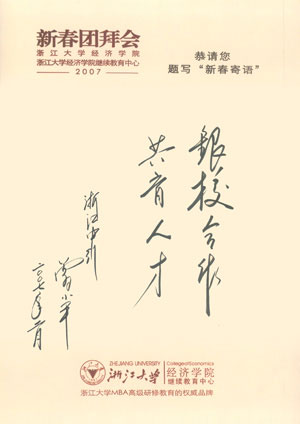 新春团拜会
浙江大学经济学院
浙江大学经济学院继续教育中心
2007
恭请您
题写“新春寄语”
銀校合作
共育人才
浙江中行
二〇〇七年二月
ZHEJIANG UNIVERSITY
浙江大学
College of Economics
经济学院
继续教育中心
浙江大学MBA高级研修教育的权威品牌